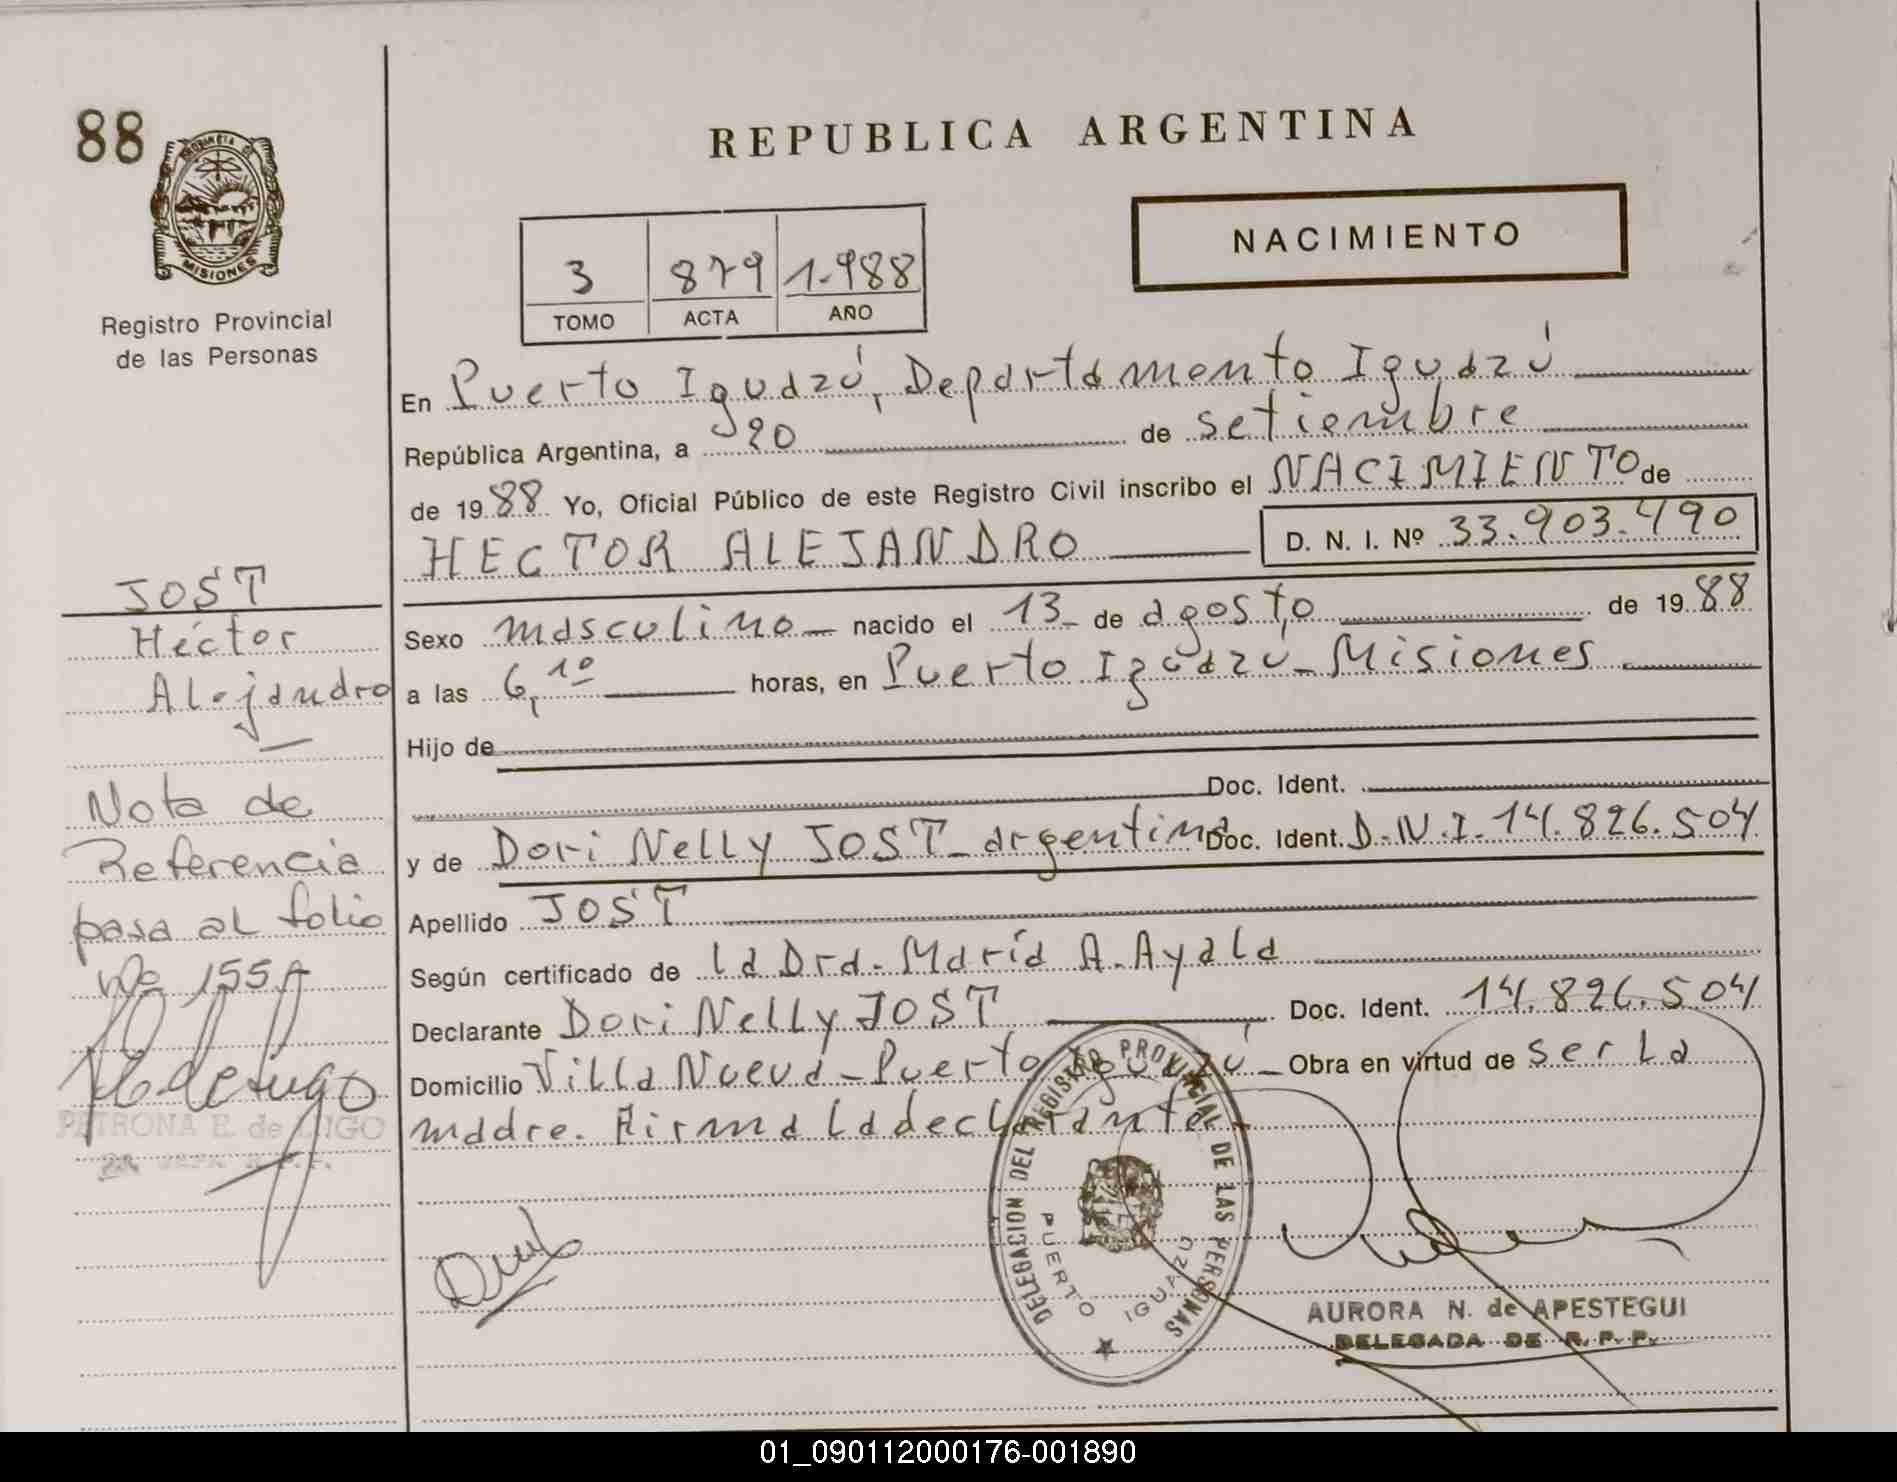 88
PROVINCIA DE
MISIONES
Registro Provincial
de las Personas
REPUBLICA ARGENTINA
NACIMIENTO
3 879 1.988
TOMO ACTA AÑO
En Puerto Iguazú, Departamento Iguazú
República Argentina, a 20 de setiembre
de 1988 Yo, Oficial Público de este Registro Civil inscribo el NACIMIENTO de
HECTOR ALEJANDRO D. N. I. Nº 33.903.490
Sexo masculino nacido el 13 de agosto de 1988
a las 6,10 horas, en Puerto Iguazú - Misiones
Hijo de
Doc. Ident.
y de Dori Nelly JOST - argentina Doc. Ident. D.N.I. 14.826.504
Apellido JOST
Según certificado de la Dra. María A. Ayala
Declarante Dori Nelly JOST Doc. Ident. 14.826.504
Domicilio Villa Nueva - Puerto Iguazú - Obra en virtud de ser la
madre. Firma la declarante.
JOST
Héctor
Alejandro
Nota de
Referencia
pasa al folio
Nº 155
PETRONA E. de LUGO
DELEGACION DEL REGISTRO PROVINCIAL DE LAS PERSONAS
PUERTO IGUAZU
AURORA N. de APESTEGUI
DELEGADA DE R. P. P.
01_090112000176-001890